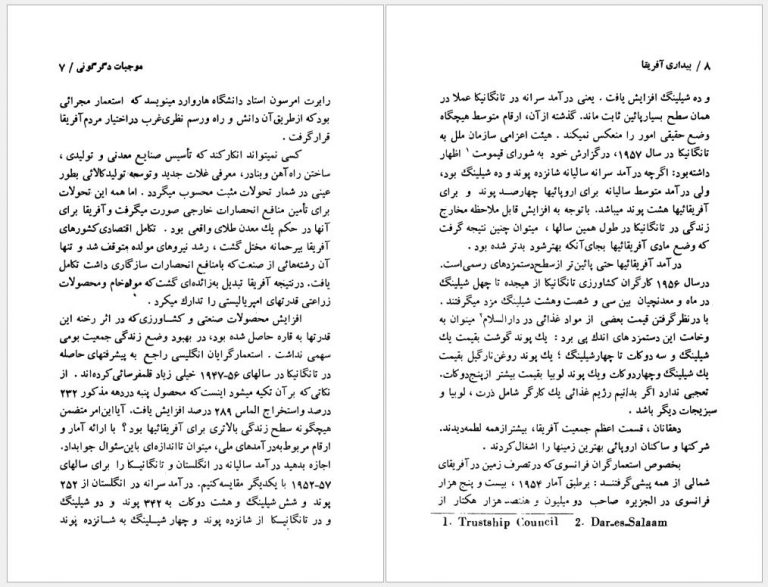 موجبات دگرگونی / ۷
رابرت امرسون استاد دانشگاه هاروارد مینویسد که استعمار مجرائی
بودکه ازطریق‌آن دانش و راه ورسم نظری‌غرب دراختیار مردم‌آفریقا
قرارگرفت .
کسی نمیتواند انکارکند که تأسیس صنایع معدنی و تولیدی ،
ساختن راه‌آهن وبنادر، معرفی غلات جدید و توسعه تولیدکالائی بطور
عینی در شمار تحولات مثبت محسوب میگردد . اما همه این تحولات
برای تأمین منافع انحصارات خارجی صورت میگرفت و آفریقا برای
آنها در حکم یك معدن طلای واقعی بود . تکامل اقتصادی‌کشورهای
آفریقا بیرحمانه مختل گشت ، رشد نیروهای مولده متوقف شد و تنها
آن رشته‌هائی از صنعت‌که بامنافع انحصارات سازگاری داشت تکامل
یافت. درنتیجه آفریقا تبدیل به‌زائده‌ای گشت‌که موادخام ومحصولات
زراعتی قدرتهای امپریالیستی را تدارك میکرد .
افزایش محصولات صنعتی و کشاورزی‌که در اثر رخنه این
قدرتها به قاره حاصل شده بود، در بهبود وضع زندگی جمعیت بومی
سهمی نداشت . استعمارگرایان انگلیسی راجع به پیشرفتهای حاصله
در تانگانیکا در سالهای ۵۶-۱۹۴۷ خیلی زیاد قلمفرسائی‌کرده‌اند . از
نکاتی‌که بر آن تکیه میشود اینست‌که محصول پنبه دردهه مذکور ۲۳۲
درصد واستخراج الماس ۲۸۹ درصد افزایش یافت. آیااین‌امر متضمن
هیچگونه سطح زندگی بالاتری برای آفریقائیها بود؟ با ارائه آمار و
ارقام مربوط‌به‌درآمدهای ملی، میتوان تااندازه‌ای باین‌سئوال جوابداد.
اجازه بدهید درآمد سالیانه در انگلستان و تانگانیکا را برای سالهای
۵۷-۱۹۵۲ با یکدیگر مقایسه‌کنیم. درآمد سرانه در انگلستان از ۲۵۲
پوند و شش شیلینگ و هشت دوکات به ۳۴۲ پوند و دو شیلینگ
و در تانگانیکا از شانزده پوند و چهار شیلینگ به شانزده پوند
۸ / بیداری آفریقا
و ده شیلینگ افزایش یافت . یعنی درآمد سرانه در تانگانیکا عملا در
همان سطح بسیارپائین ثابت ماند. گذشته ازآن، ارقام متوسط هیچگاه
وضع حقیقی امور را منعکس نمیکند . هیئت اعزامی سازمان ملل به
تانگانیکا در سال ۱۹۵۷، درگزارش خود به شورای قیمومت ۱ اظهار
داشته‌بود: اگرچه درآمد سرانه سالیانه شانزده پوند و ده شیلینگ بود،
ولی درآمد متوسط سالیانه برای اروپائیها چهارصد پوند و برای
آفریقائیها هشت پوند میباشد. باتوجه به افزایش قابل ملاحظه مخارج
زندگی در تانگانیکا در طول همین سالها ، میتوان چنین نتیجه گرفت
که وضع مادی آفریقائیها بجای‌آنکه بهترشود بدتر شده بود .
درآمد آفریقائیها حتی پائین‌تر ازسطح‌دستمزدهای رسمی‌است.
درسال ۱۹۵۶ کارگران کشاورزی تانگانیکا از هیجده تا چهل شیلینگ
در ماه و معدنچیان بین سی و شصت وهشت شیلینگ مزد میگرفتند .
با درنظرگرفتن قیمت بعضی از مواد غذائی در دارالسلام ۲ میتوان به
وخامت این دستمزدهای اندك پی برد : یك پوند گوشت بقیمت یك
شیلینگ و سه دوکات تا چهارشیلینگ ؛ یك پوند روغن‌نارگیل بقیمت
یك شیلینگ وچهاردوکات ویك پوند لوبیا بقیمت بیشتر ازپنج‌دوکات.
تعجبی ندارد اگر بدانیم رژیم غذائی یك کارگر شامل ذرت ، لوبیا و
سبزیجات دیگر باشد .
دهقانان ، قسمت اعظم جمعیت آفریقا، بیشترازهمه لطمه‌دیدند.
شرکتها و ساکنان اروپائی بهترین زمینها را اشغال‌کردند .
بخصوص استعمارگران فرانسوی‌که درتصرف زمین درآفریقای
شمالی از همه پیشی‌گرفتند : برطبق آمار ۱۹۵۴ ، بیست و پنج هزار
فرانسوی در الجزیره صاحب دو میلیون و هفتصد هزار هکتار از
1. Trustship Council 2. Dar-es-Salaam